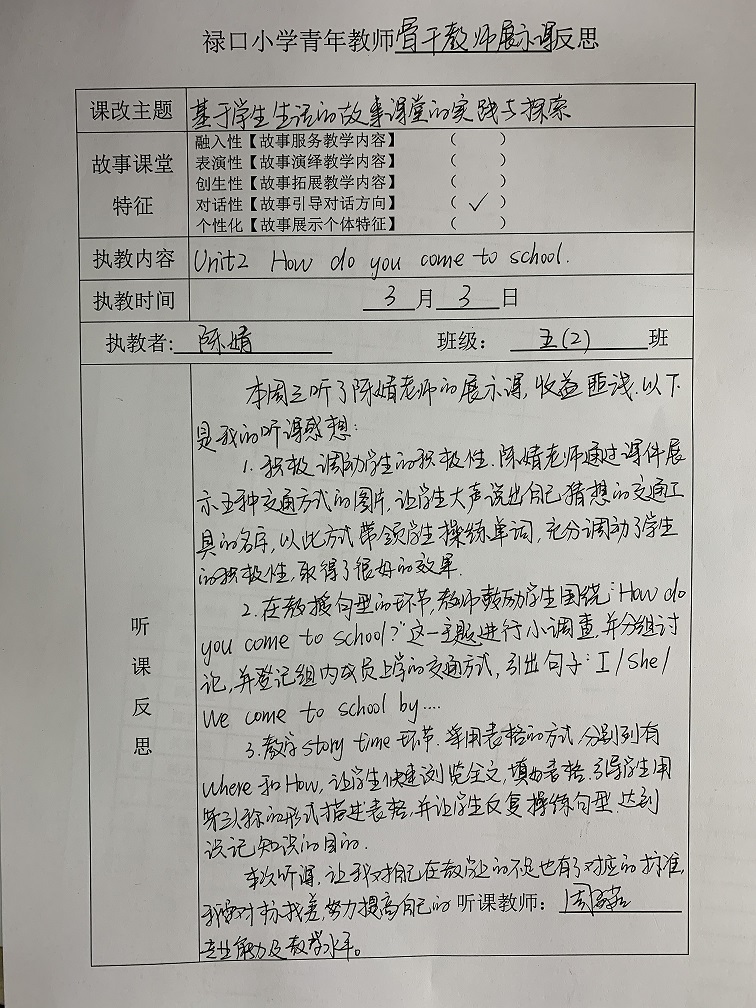 禄口小学青年教师骨干教师展示课反思
课改主题 基于学生生活的故事课堂的实践与探索
故事课堂特征
融入性【故事服务教学内容】 （ ）
表演性【故事演绎教学内容】 （ ）
创生性【故事拓展教学内容】 （ ）
对话性【故事引导对话方向】 （ ✓ ）
个性化【故事展示个体特征】 （ ）
执教内容 Unit2 How do you come to school.
执教时间 3 月 3 日
执教者: 陈婧 班级： 五(2) 班
听课反思
本周三听了陈婧老师的展示课,收益匪浅.以下
是我的听课感想:
1.积极调动学生的积极性.陈婧老师通过课件展
示五种交通方式的图片,让学生大声说出自己猜想的交通工
具的名字,以此方式带领学生操练单词,充分调动了学生
的积极性,取得了很好的效果.
2.在教授句型的环节,教师鼓励学生围绕:"How do
you come to school?"这一主题进行小调查,并分组讨
论,并登记组内成员上学的交通方式,引出句子:I/She/
We come to school by....
3.教学story time环节.采用表格的方式,分别列有
where和How,让学生快速浏览全文,填好表格.引导学生用
第三人称的形式描述表格,并让学生反复操练句型,达到
识记知识的目的.
本次听课,让我对自己在教学上的不足也有了对应的标准,
我要对标找差,努力提高自己的 听课教师： 周
专业能力及教学水平。